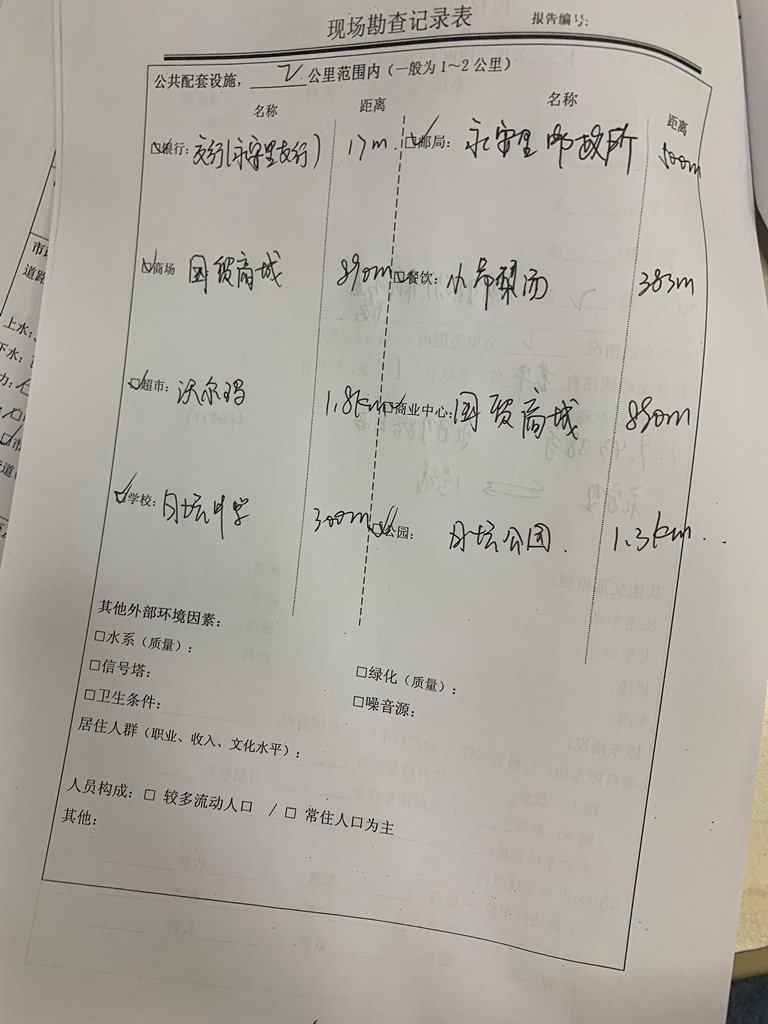 现场勘查记录表 报告编号:
公共配套设施, 2 公里范围内（一般为1~2公里）
名称 距离 名称 距离
☑银行: 交行(永安里支行) 17m ☑邮局: 永安里邮政所 500m
☑商场 国贸商城 890m ☑餐饮: 小吊梨汤 383m
☑超市: 沃尔玛 1.8km ☑商业中心: 国贸商城 890m
☑学校: 月坛中学 300m ☑公园: 月坛公园. 1.3km
其他外部环境因素:
□水系（质量）: □绿化（质量）:
□信号塔: □噪音源:
□卫生条件:
居住人群（职业、收入、文化水平）:
人员构成: □ 较多流动人口 / □ 常住人口为主
其他: